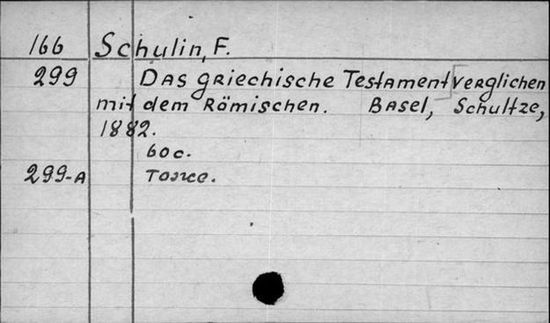 166 Schulin, F.
299 Das griechische Testament verglichen
mit dem Römischen. Basel, Schultze,
1882.
60 c.
299-A Тоже.